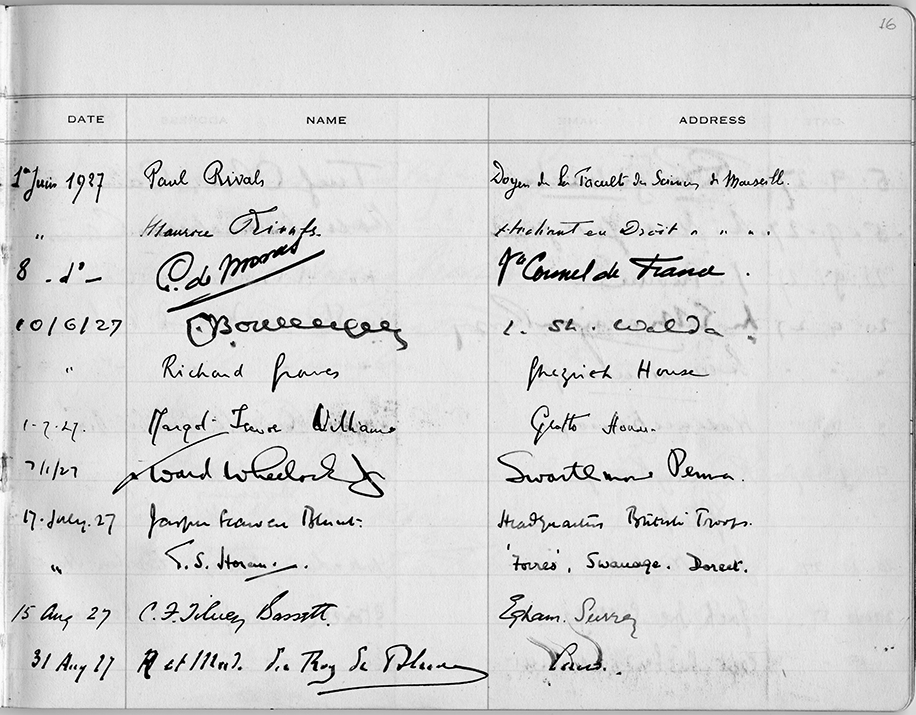 16
DATE NAME ADDRESS
1er Juin 1927 Paul Rivals Doyen de la Faculté des Sciences de Marseille.
" Maurice Rivals. Etudiant en Droit " " " "
8 - do - de Consul de France.
10/6/27 1. St.
" Richard Graves House
1-7-27 Margot Williams House.
7/1/27 Ward Wheelock Jr Swarthmore Penna.
17. July. 27 Jasper Blunt. Headquarters British Troops.
" T.S. Horan. 'Forres', Swanage. Dorset.
15 Aug 27 C. F. Tilney Bassett. Egham. Surrey
31 Aug 27 et Mad. Le Roy Paris.